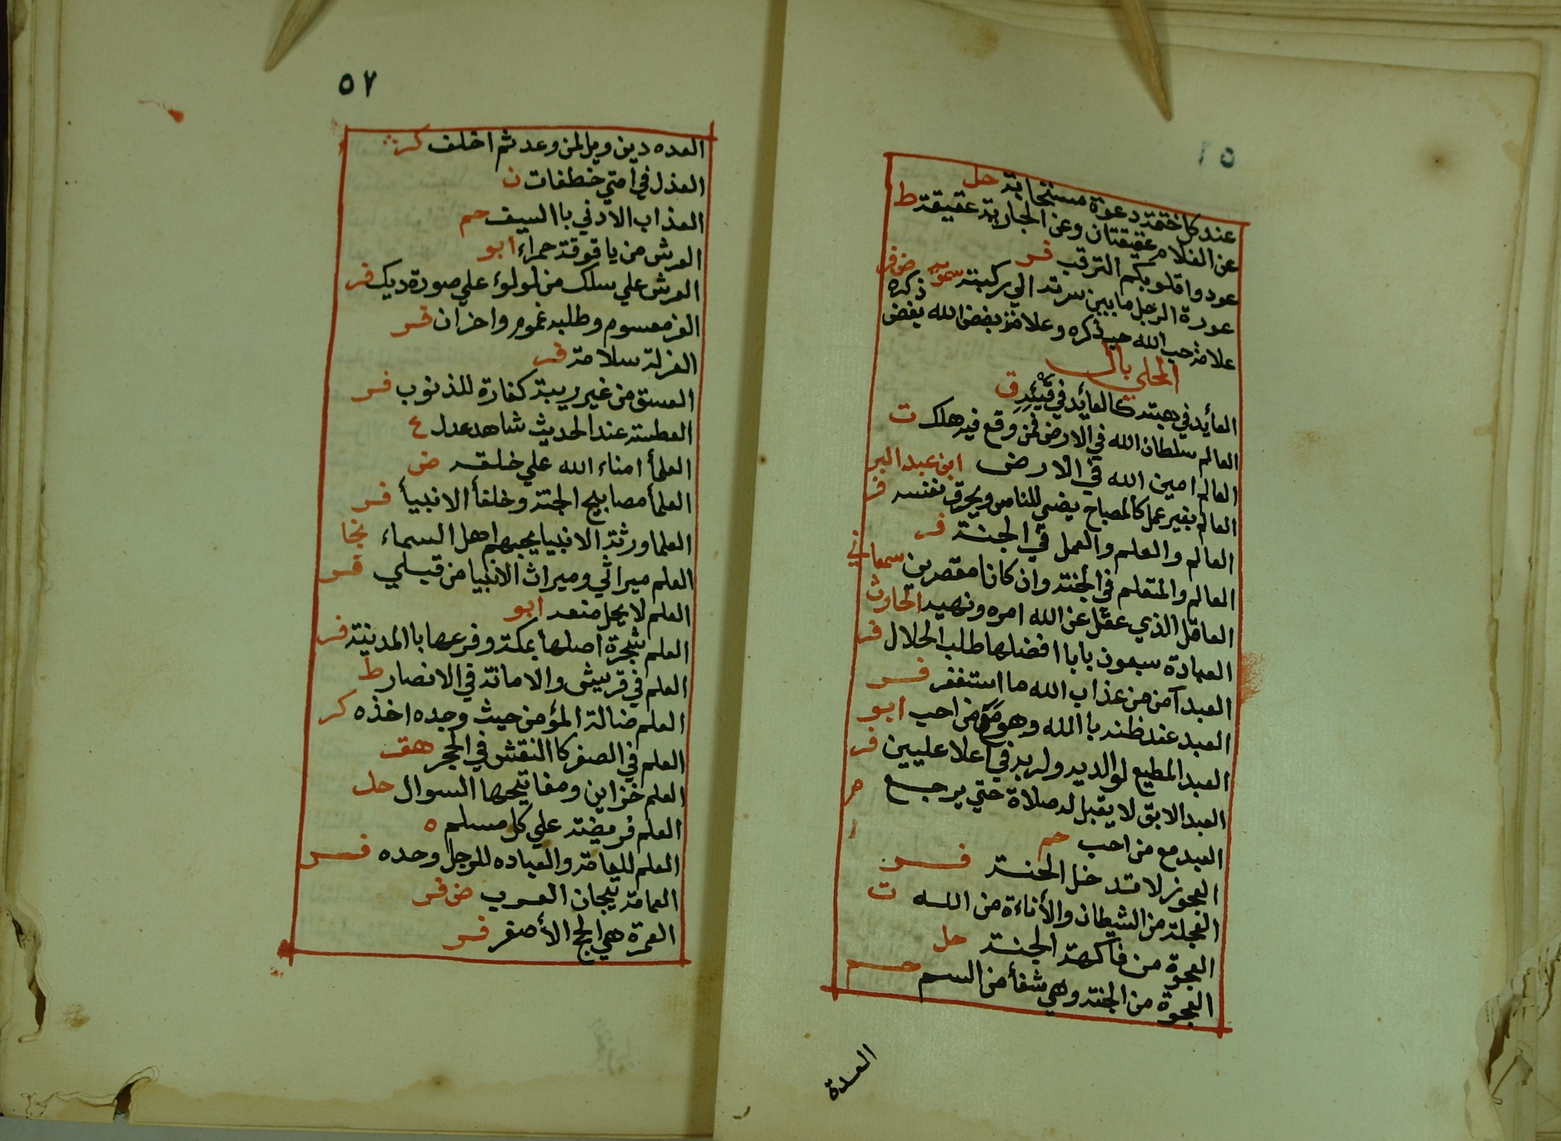 ٥٦
عند كل ختمة دعوة مستجابة حل
عن الغلام عقيقتان وعن الجارية عقيقة ط
عودوا قلوبكم الترقب فر
عورة الرجل ما بين سرته الي ركبته سمويه ض فر
علامة حب الله حب ذكره وعلامة بغض الله بغض ذكره
المحلي بال
العائد في هبته كالعائد في قيئه ق
العالم سلطان الله في الارض فمن وقع فيه هلك ت
العالم امين الله في الارض ابن عبد البر
العالم بغير عمل كالمصباح يضي للناس ويحرق نفسه فر
العالم والعلم والعمل في الجنة فر
العالم والمتعلم في الجنة وان كانا مقصرين سمعاني
العاقل الذي عقل عن الله امره ونهيه الحارث
العبادة سبعون بابا افضلها طلب الحلال فر
العبد آمن من عذاب الله ما استغفر فر
العبد عند ظنه باالله وهو مع من احب ابو
العبد المطيع لوالديه ولربه في اعلا عليين فر
العبد الابق لا يقبل له صلاة حتي يرجع م
العبد مع من احب حم
العجوز لا تدخل الجنة فر
العجلة من الشيطان والأناءة من الله ت
العجوة من فاكهة الجنة حل
العجوة من الجنة وهي شفأ من السم حم
العدة
٥٧
العده دين ويل لمن وعد ثم اخلف كر
العذل في امتي خطفات ن
العذاب الادني باالسيف حم
العرش من ياقوقة حمراء ابو
العرش علي سلك من لولوء علي صورة ديك فر
العز مقسوم وطلبه غموم واحزان فر
العزلة سلامة فر
العسق من غير ريبة كفارة للذنوب فر
العطسة عند الحديث شاهد عدل ع
العلمأ امناء الله علي خلقه ض
العلمأ مصابيح الجنة وخلفأ الانبيأ فر
العلما ورثة الانبيا يحبهم اهل السماء نجا
العلم ميراثي وميراث الانبيا من قبلي فر
العلم لا يحل منعه ابو
العلم شجرة اصلها بمكة وفرعها باالمدينة فر
العلم في قريش والامانة في الانصار ط
العلم ضالة المؤمن حيث وجده اخذه كر
العلم في الصغر كاالنقش في الحجر هق
العلم خزاين ومفاتيحها السوال حل
العلم فريضة علي كل مسلم ه
العلم للعامة والعباده للرجل وحده فر
العمامة تيجان العرب ض فر
العمرة هي الحج الأصغر فر